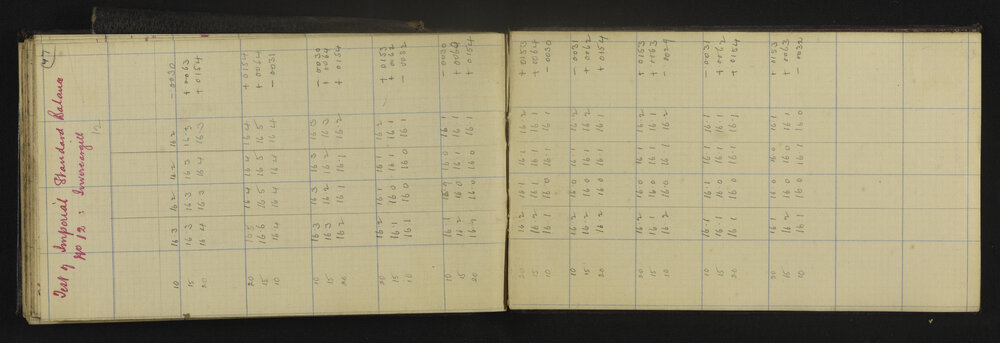 47
Test of Imperial Standard Balance
No 12 : Invercargill
12
10 16.3 16.2 16.2 16.2 - 0030
15 16.3 16.3 16.3 16.3 + 0063
20 16.4 16.3 16.4 16.3 + 0154
20 16.5 16.4 16.4 16.4 + 0154
15 16.6 16.5 16.5 16.5 + 0064
10 16.4 16.4 16.4 16.4 - 0031
10 16.3 16.3 16.3 16.3 - 0030
15 16.3 16.3 16.2 16.3 + 0064
20 16.2 16.1 16.1 16.2 + 0154
20 16.2 16.1 16.1 16.2 + 0153
15 16.1 16.0 16.1 16.1 + 0062
10 16.1 16.0 16.0 16.1 - 0032
10 16.1 16.0 16.1 - 0030
15 16.2 16.0 16.1 16.1 + 0064
20 16.0 16.0 16.1 + 0154
20 16.2 16.1 16.1 16.2 + 0153
15 16.2 16.1 16.1 16.1 + 0064
10 16.1 16.0 16.1 16.1 - 0030
10 16.2 16.0 16.1 16.2 - 0031
15 16.2 16.0 16.1 16.2 + 0062
20 16.2 16.0 16.1 16.1 + 0154
20 16.1 16.0 16.1 16.2 + 0153
15 16.1 16.0 16.1 16.2 + 0063
10 16.2 16.0 16.1 16.2 - 0029
10 16.1 16.1 16.1 16.1 - 0031
15 16.1 16.0 16.1 16.1 + 0062
20 16.1 16.0 16.1 16.1 + 0154
20 16.1 16.0 16.0 16.1 + 0153
15 16.2 16.0 16.0 16.1 + 0063
10 16.1 16.0 16.1 16.0 - 0032